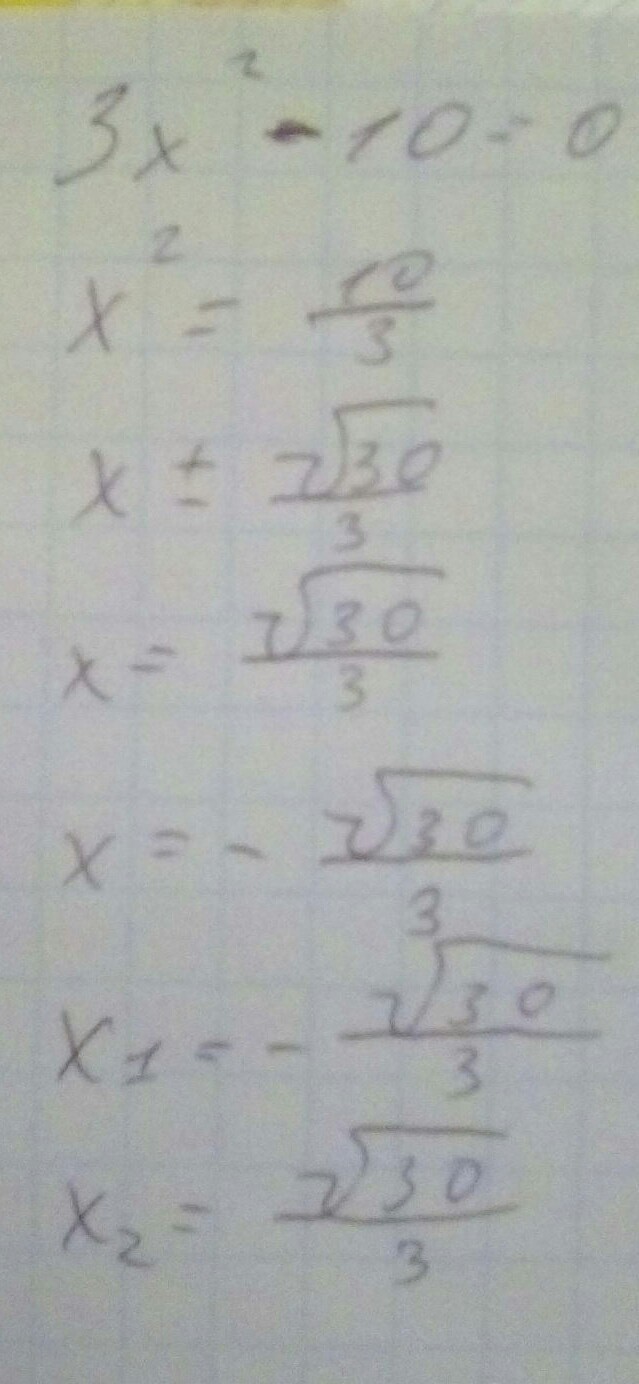 3x² - 10 = 0
x² = 10/3
x ± √30/3
x = √30/3
x = - √30/3
x₁ = - √30/3
x₂ = √30/3